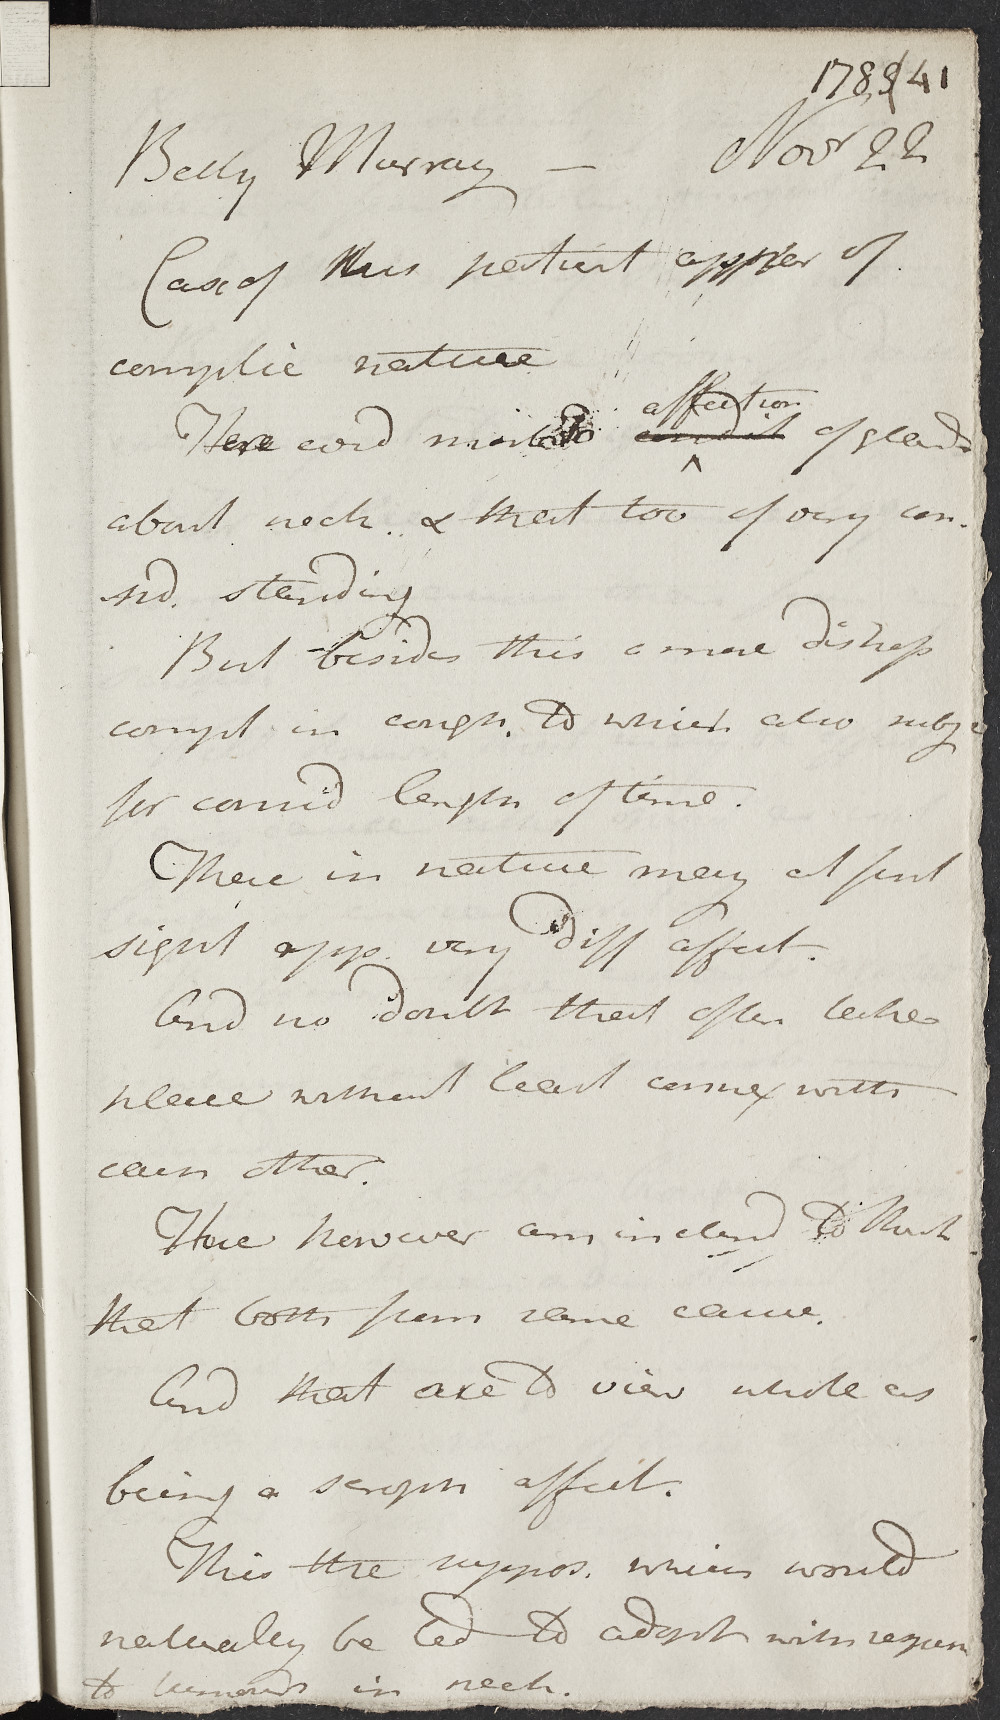 1789 41
Betty Murray — Novr 22
Case of this patient appear of
complic nature
Here evid morbid affection of glands
about neck. & that too of very con-
sid. standing
But besides this a more distress
compl in cough, to which also subje
for consid length of time.
These in nature may at first
sight app. very diff affect.
And no doubt that often takes
place without least connex with
each other.
Here however am inclend to think
that both from same cause.
And that are to view whole as
being a scroph affect.
This the suppos. which would
naturally be led to adopt with respect
to tumours in neck.